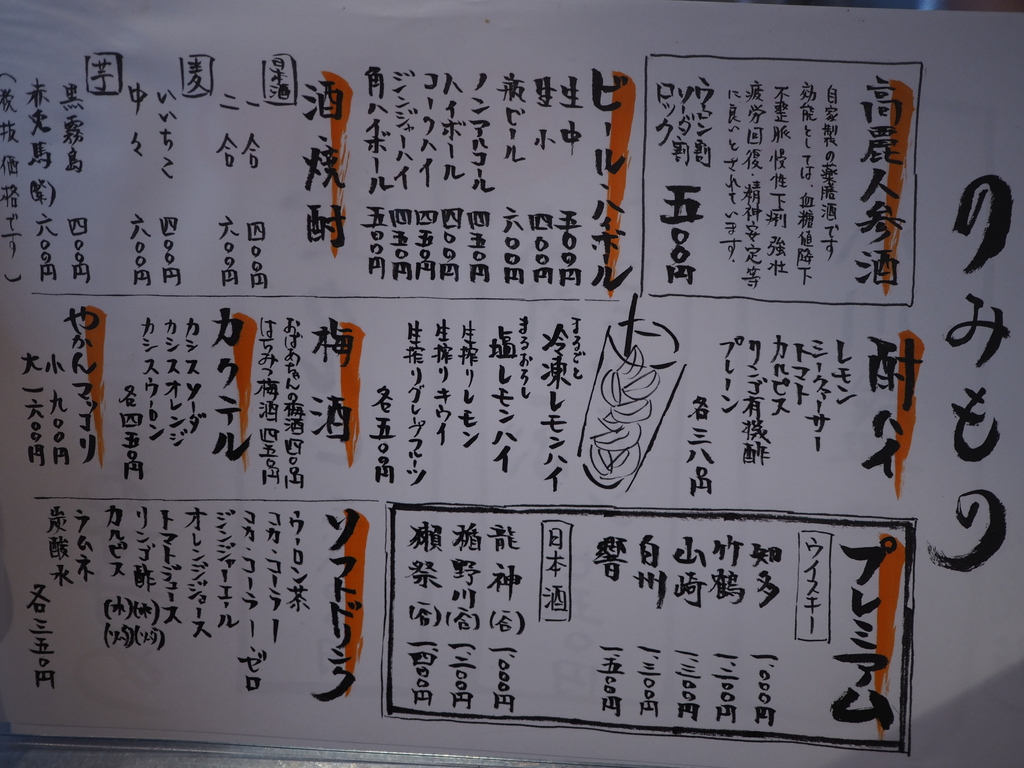 のみもの
高麗人参酒
自家製の薬膳酒です
効能としては、血糖値降下
不整脈 慢性下痢 強壮
疲労回復・精神安定等
に良いとされています。
ウーロン割
ソーダ割
ロック
五〇〇円
ビール・ハイボール
生中 五〇〇円
生小 四〇〇円
瓶ビール 六〇〇円
ノンアルコール 四五〇円
ハイボール 四〇〇円
コークハイ 四五〇円
ジンジャーハイ 四五〇円
角ハイボール 五〇〇円
酒・焼酎
日本酒
一合 四〇〇円
二合 六〇〇円
麦
いいちこ 四〇〇円
中々 六〇〇円
芋
黒霧島 四〇〇円
赤兎馬(紫) 六〇〇円
(税抜価格です)
酎ハイ
レモン
シークァーサー
トマト
カルピス
リンゴ有機酢
プレーン
各三八〇円
まるごと
冷凍レモンハイ
まるおろし
塩レモンハイ
生搾りレモン
生搾りキウイ
生搾りグレープフルーツ
各五〇〇円
梅酒
おばあちゃんの梅酒 四〇〇円
はちみつ梅酒 四五〇円
カクテル
カシスソーダ
カシスオレンジ
カシスウーロン
各四五〇円
やかんマッコリ
小 九〇〇円
大 一六〇〇円
プレミアム
ウイスキー
知多 一、〇〇〇円
竹鶴 一、二〇〇円
山崎 一、三〇〇円
白州 一、三〇〇円
響 一、五〇〇円
日本酒
龍神(合) 一、〇〇〇円
楯野川(合) 一、二〇〇円
獺祭(合) 一、四〇〇円
ソフトドリンク
ウーロン茶
コカ・コーラ
コカ・コーラ・ゼロ
ジンジャーエール
オレンジジュース
トマトジュース
リンゴ酢(水)(ソーダ)
カルピス(水)(ソーダ)
ラムネ
炭酸水
各三五〇円